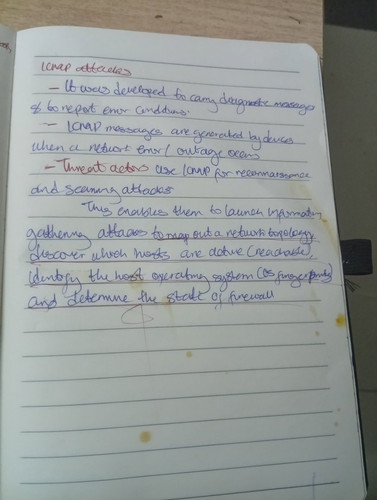 ICMP attacks
- It was developed to carry diagnostic messages
& to report error conditions.
- ICMP messages are generated by devices
when a network error / outage occurs
- Threat actors use ICMP for reconnaissance
and scanning attacks
This enables them to launch information
gathering attacks to map out a network topology
discover which hosts are active (reachable),
identify the host operating system (os fingerprints)
and determine the state of firewall